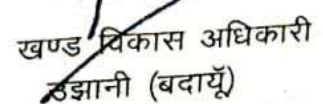 खण्ड विकास अधिकारी
उझानी (बदायूँ)